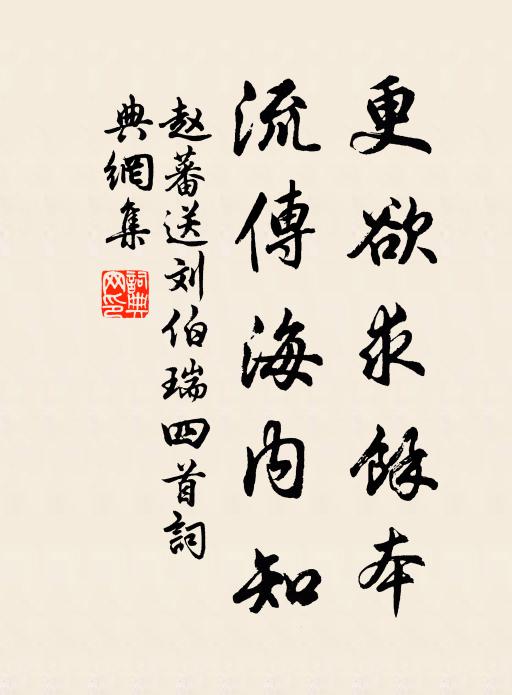 更欲求餘本
流傳海内知
赵蕃送刘伯瑞四首詞
典網集
詞典網印